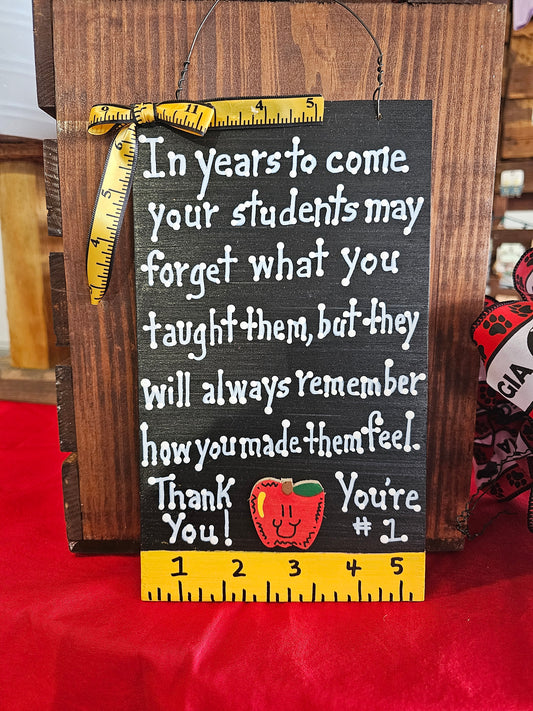 In years to come
your students may
forget what you
taught them, but they
will always remember
how you made them feel.
Thank You!
You're # 1
1 2 3 4 5
11 4 5
6
5
4
GIA